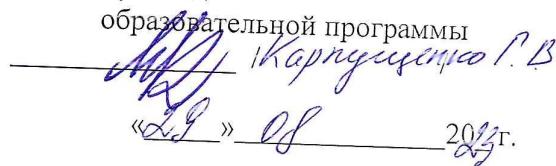 образовательной программы
Карпущенко Г. В
«29» 08 2023г.